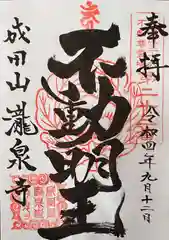 奉拝
令和四年九月十二日
不動明王
成田山瀧泉寺